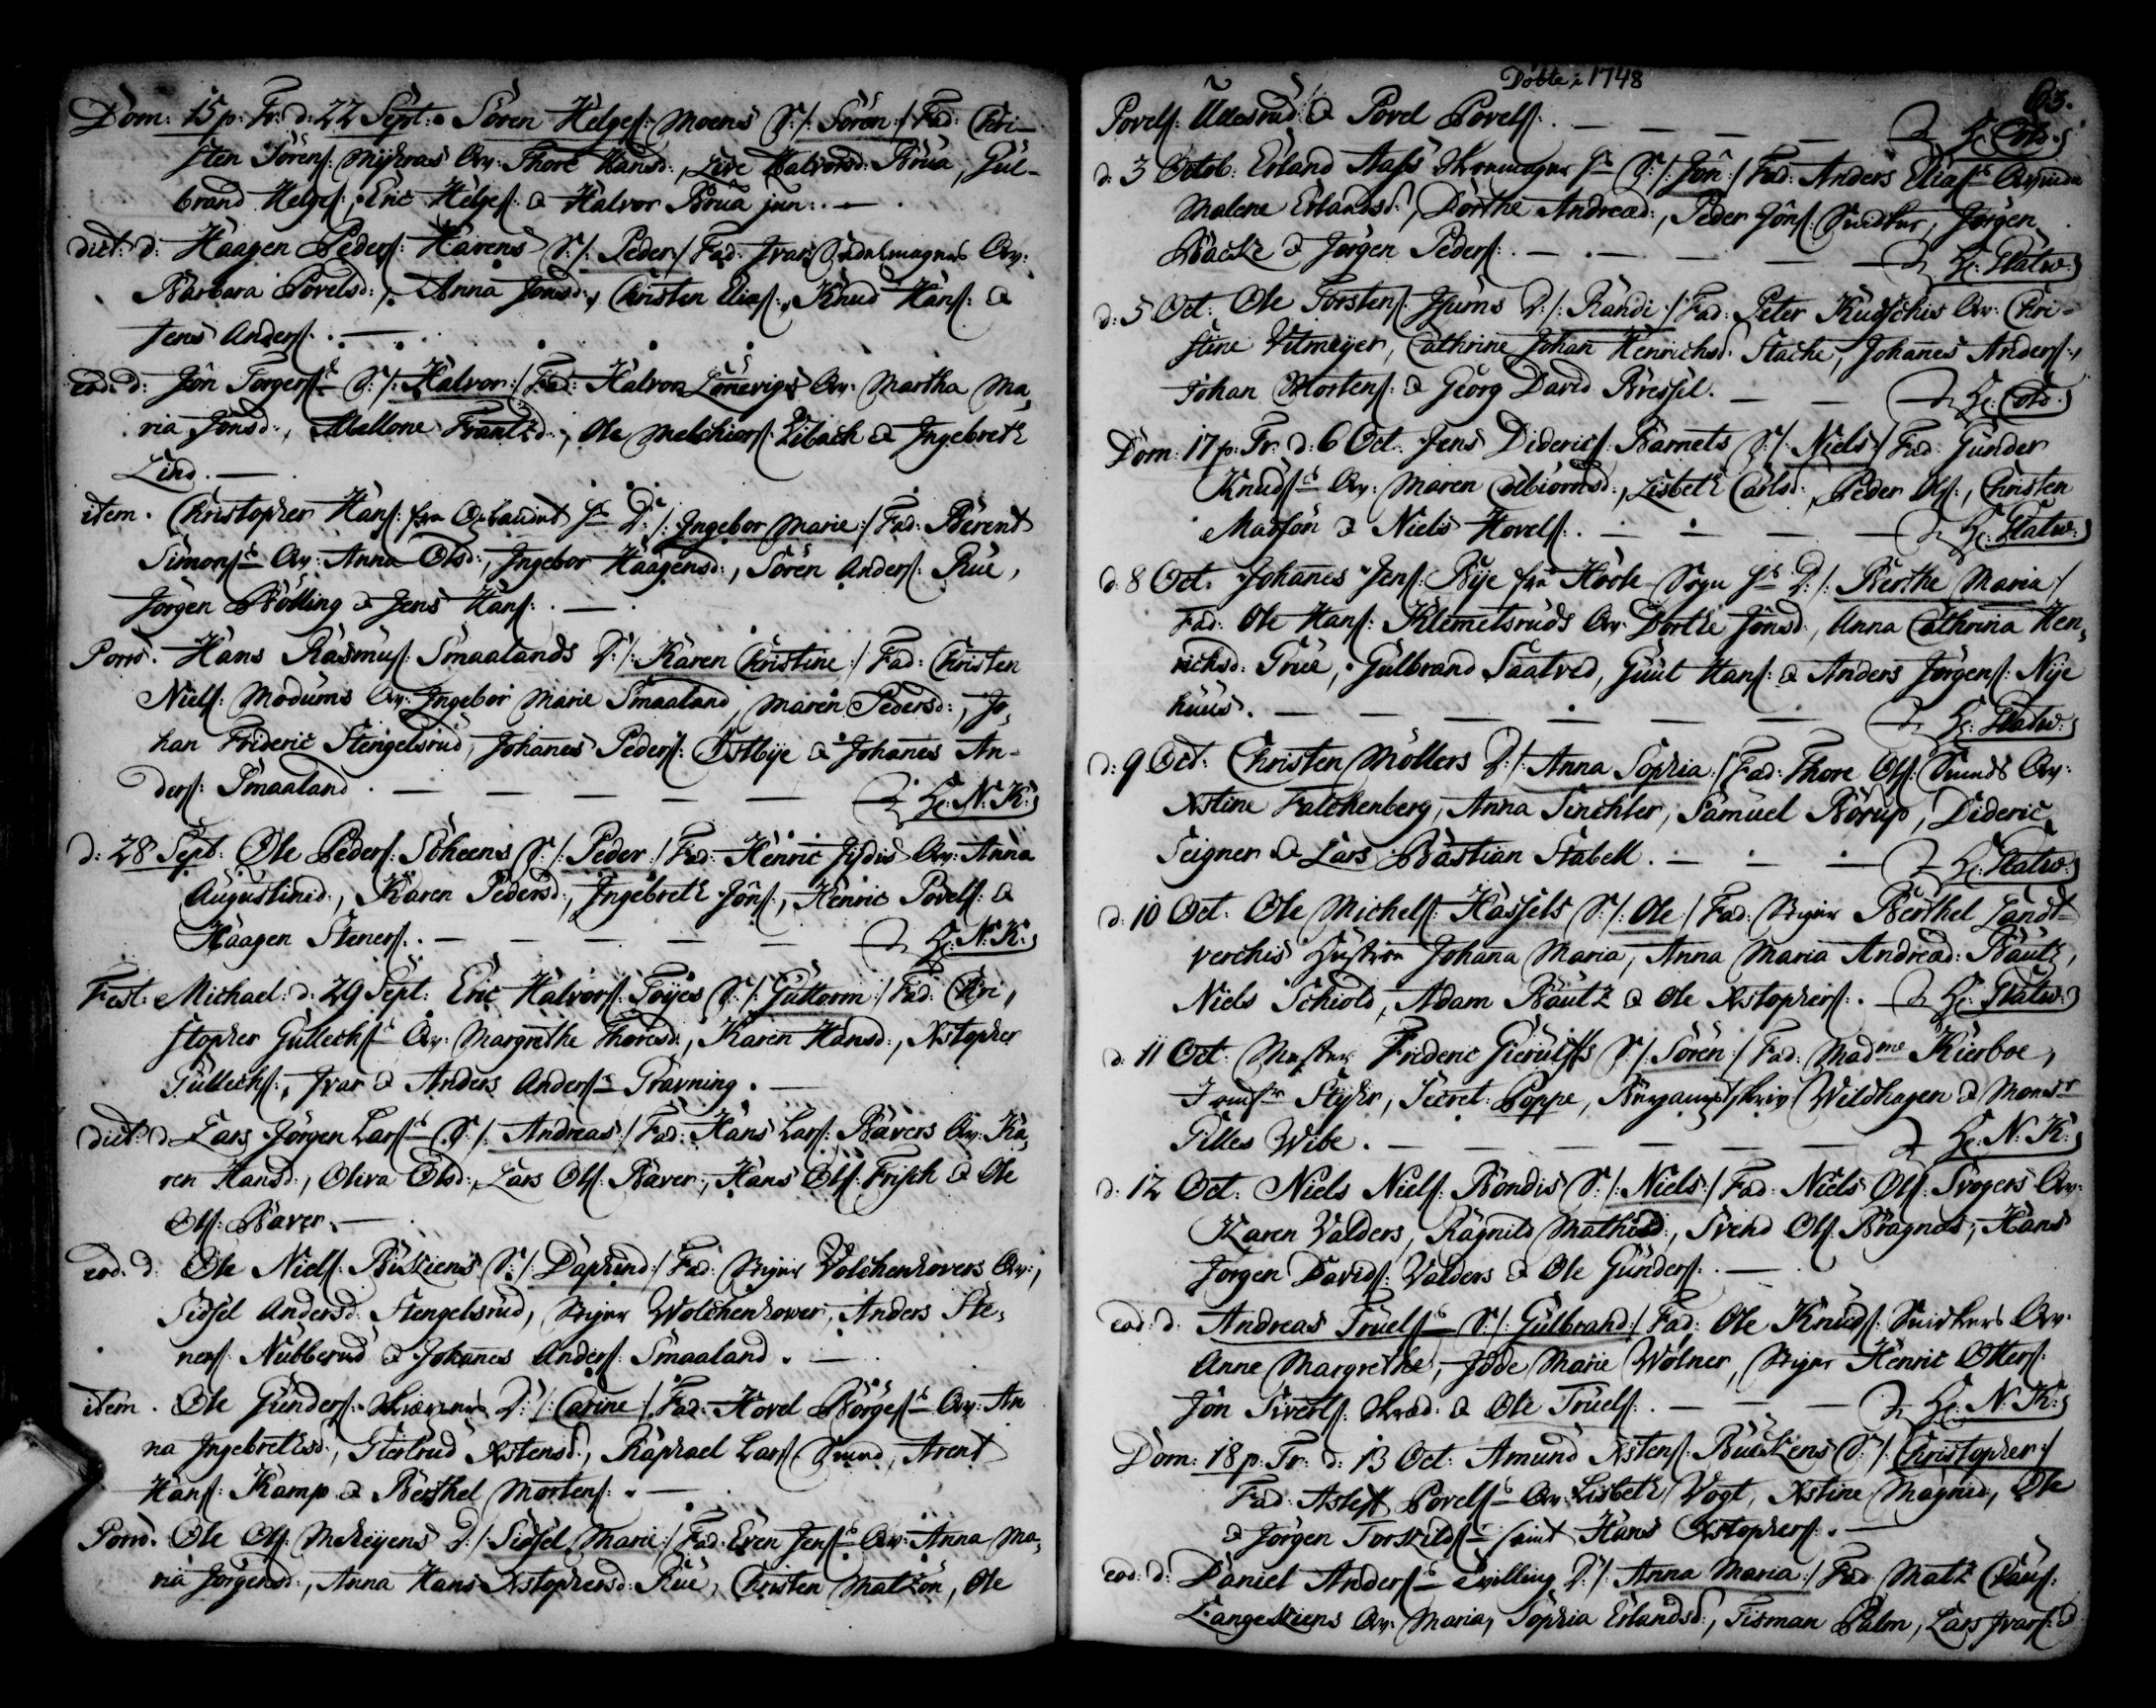 Dom: 15 p: Tr: d: 22 Sept: Sören Helges: Moens S: /: Sören :/ Fad: Chri-
sten Sörens: Myhras Qv: Thore Hansd:, Live Halvorsd: Brua, Gul-
brand Helges:, Eric Helges: & Halvor Brua jun:. —
dict: d: Haagen Peders: Havens S: /: Peder :/ Fad: Ivar Qv:
Barbara Povelsd:, Anna Jonsd:, Christen Elias:, Knud Hans: &
Jens Anders:. —
eod: d: Jôn Torgers: S: /: Halvor :/ Fad: Halvor Lönevigs Qv: Martha Ma,
ria Jonsd:, Mallene Frantzd:, Ole Melchiors: Eibach & Ingebreth
Lind. —
item. Christopher Hans: fra D: /: Ingebor Marie :/ Fad: Berent
Simons: Qv: Anna Olsd:, Ingebor Haagensd:, Sören Anders: Rue,
Jörgen Bölling & Jens Hans:. —
Porro. Hans Rasmus: Smaalands D: /: Karen Christine :/ Fad: Christen
Niels: Modums Qv: Ingebor Marie Smaaland, Maren Pedersd:, Jo,
han Frideric Stengelsrud, Johanes Peders: Östbye & Johanes An-
ders: Smaaland. — — — — — — H: N: K:
d: 28 Sept: Ole Peders: Scheens S: /: Peder :/ Fad: Henric Qv: Anna
Augustinsd:, Karen Pedersd:, Ingebreth Jôns:, Henric Povels: &
Haagen Steners:. — — — — — H: N: K:
Fest: Michael: d: 29 Sept: Eric Halvors: Töyes S: /: Guttorm :/ Fad: Chri,
stopher Gullechs: Qv: Margrethe Thoresd:, Karen Hansd:, Xstopher
Gullechs:, Ivar & Anders Anders: Gravning. —
dict: d: Lars Jörgen Lars: S: /: Andreas :/ Fad: Hans Lars: Bavers Qv: Ka,
ren Hansd:, Oliva Olsd:, Lars Ols: Baver, Hans Ols: Frisch & Ole
Ols: Baver. —
eod: d: Ole Niels: Buskiens S: /: Daphind :/ Fad: Volchenhovers Qv:,
Sidsel Andersd: Stengelsrud, Wolchenhower, Anders Ste,
ners: Nubberud & Johanes Anders: Smaaland. —
item. Ole Gunders: D: /: Carine :/ Fad: Hovel Börges: Qv: An
na Ingebrethsd:, Giertrud Xstensd:, Raphael Lars: Arent
Hans: Kamp & Berthel Mortens:. —
Porro. Ole Ols: D: /: Sidsel Marie :/ Fad: Even Jens: Qv: Anna Ma,
ria Jörgensd:, Anna Hans Xstophersd: Rue, Christen Matzôn, Ole
Döbte i 1748
63.
Povels: Ullesrud & Povel Povels:. — — — — H: Cold:
d: 3 Octob: Erland Aass S: /: Jôn :/ Fad: Anders Elias: Qvinde
Malene Erlandsd:, Dorthe Andreæd:, Peder Jôns: Jörgen
Backe & Jörgen Peders:. — — — — H: Statw:
d: 5 Oct: Ole Torstens: D: /: Randi :/ Fad: Peter Kudschis Qv: Chri-
stine Vitmeyer, Cathrine Johan Henrichsd: Stache, Johanes Anders:,
Johan Mortens: & Georg David Bressel. — — H: Cold:
Dom: 17 p: Tr: d: 6 Oct: Jens Diderics: Barnets S: /: Niels :/ Fad: Gunder
Knuds: Qv: Maren Esbiörnsd:, Lisbeth Carlsd:, Peder Ols:, Christen
Madsön & Niels Hovels:. — — — — H: Statw:
d: 8 Oct: Johanes Jens: Bye fra Hoole Sogn D: /: Berthe Maria :/
Fad: Ole Hans: Klemetsruds Qv: Dorthe Jônsd:, Anna Cathrina Hen,
richsd: True, Gulbrand Saatved, Guul Hans: & Anders Jörgens: Nye
huus. — — — — — — H: Statw:
d: 9 Oct: Christen Möllers D: /: Anna Sophia :/ Fad: Thore Ols: Qv:
Xstine Falchenberg, Anna Sinchler, Samuel Börup, Dideric
Seigner & Lars Bastian Stabell. — — — H: Statw:
d: 10 Oct: Ole Michels: Hassels S: /: Ole :/ Fad: Berthel Landt-
verchis Hustroe Johana Maria, Anna Maria Andread: Bautz,
Niels Schiold, Adam Bautz & Ole Xstophers:. — H: Statw:
d: 11 Oct: Frideric Gierulffs S: /: Sören :/ Fad: Mad:me Kierboe,
Secret: Poppe, Wildhagen & Mons:r
Gilles Wibe. — — — — — — H: N: K:
d: 12 Oct: Niels Niels: Bondis S: /: Niels :/ Fad: Niels Ols: Svogers Qv:
Karen Valders, Ragnild Mathisd:, Svend Ols: Bragnæs, Hans
Jorgen Davids: Valders & Ole Gunders:. —
eod: d: Andreas Truels: S: /: Gulbrand :/ Fad: Ole Knuds: Qv:
Anne Margrethe, Jode Marie Wolner, Henric Otters:
Jôn Siverts: & Ole Truels:. — — — H: N: K:
Dom: 18 p: Tr: d: 13 Oct: Amund Xstens: Buskiens S: /: Christopher :/
Fad: Povels: Qv: Lisbeth Vogt, Xstine Magnid, Ole
& Jörgen Torkilds: samt Hans Xstophers:. —
eod: d: Daniel Anders: Tvilling D: /: Anna Maria :/ Fad: Matz Claus:
Langestiens Qv: Maria, Sophia Erlandsd:, Tisman Palm, Lars Ivars: &